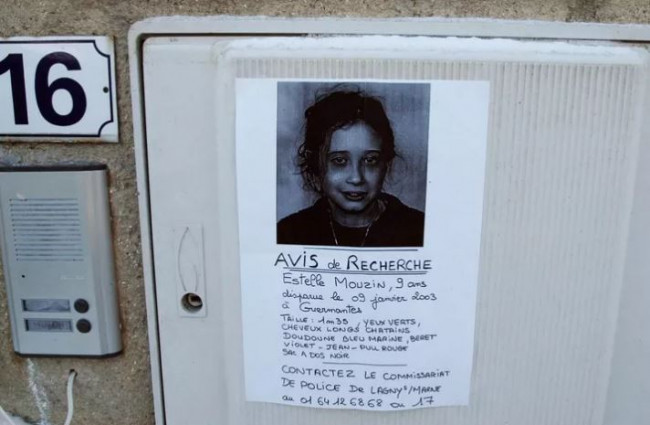 16
AVIS de RECHERCHE
Estelle MOUZIN, 9 ans
disparue le 09 janvier 2003
à Guermantes
TAILLE : 1m35, YEUX VERTS,
CHEVEUX LONGS CHATAINS
DOUDOUNE BLEU MARINE, BERET
VIOLET - JEAN - PULL ROUGE
SAC A DOS NOIR
CONTACTEZ LE COMMISSARIAT
DE POLICE DE LAGNY S/MARNE
au 01 64 12 68 68 ou 17